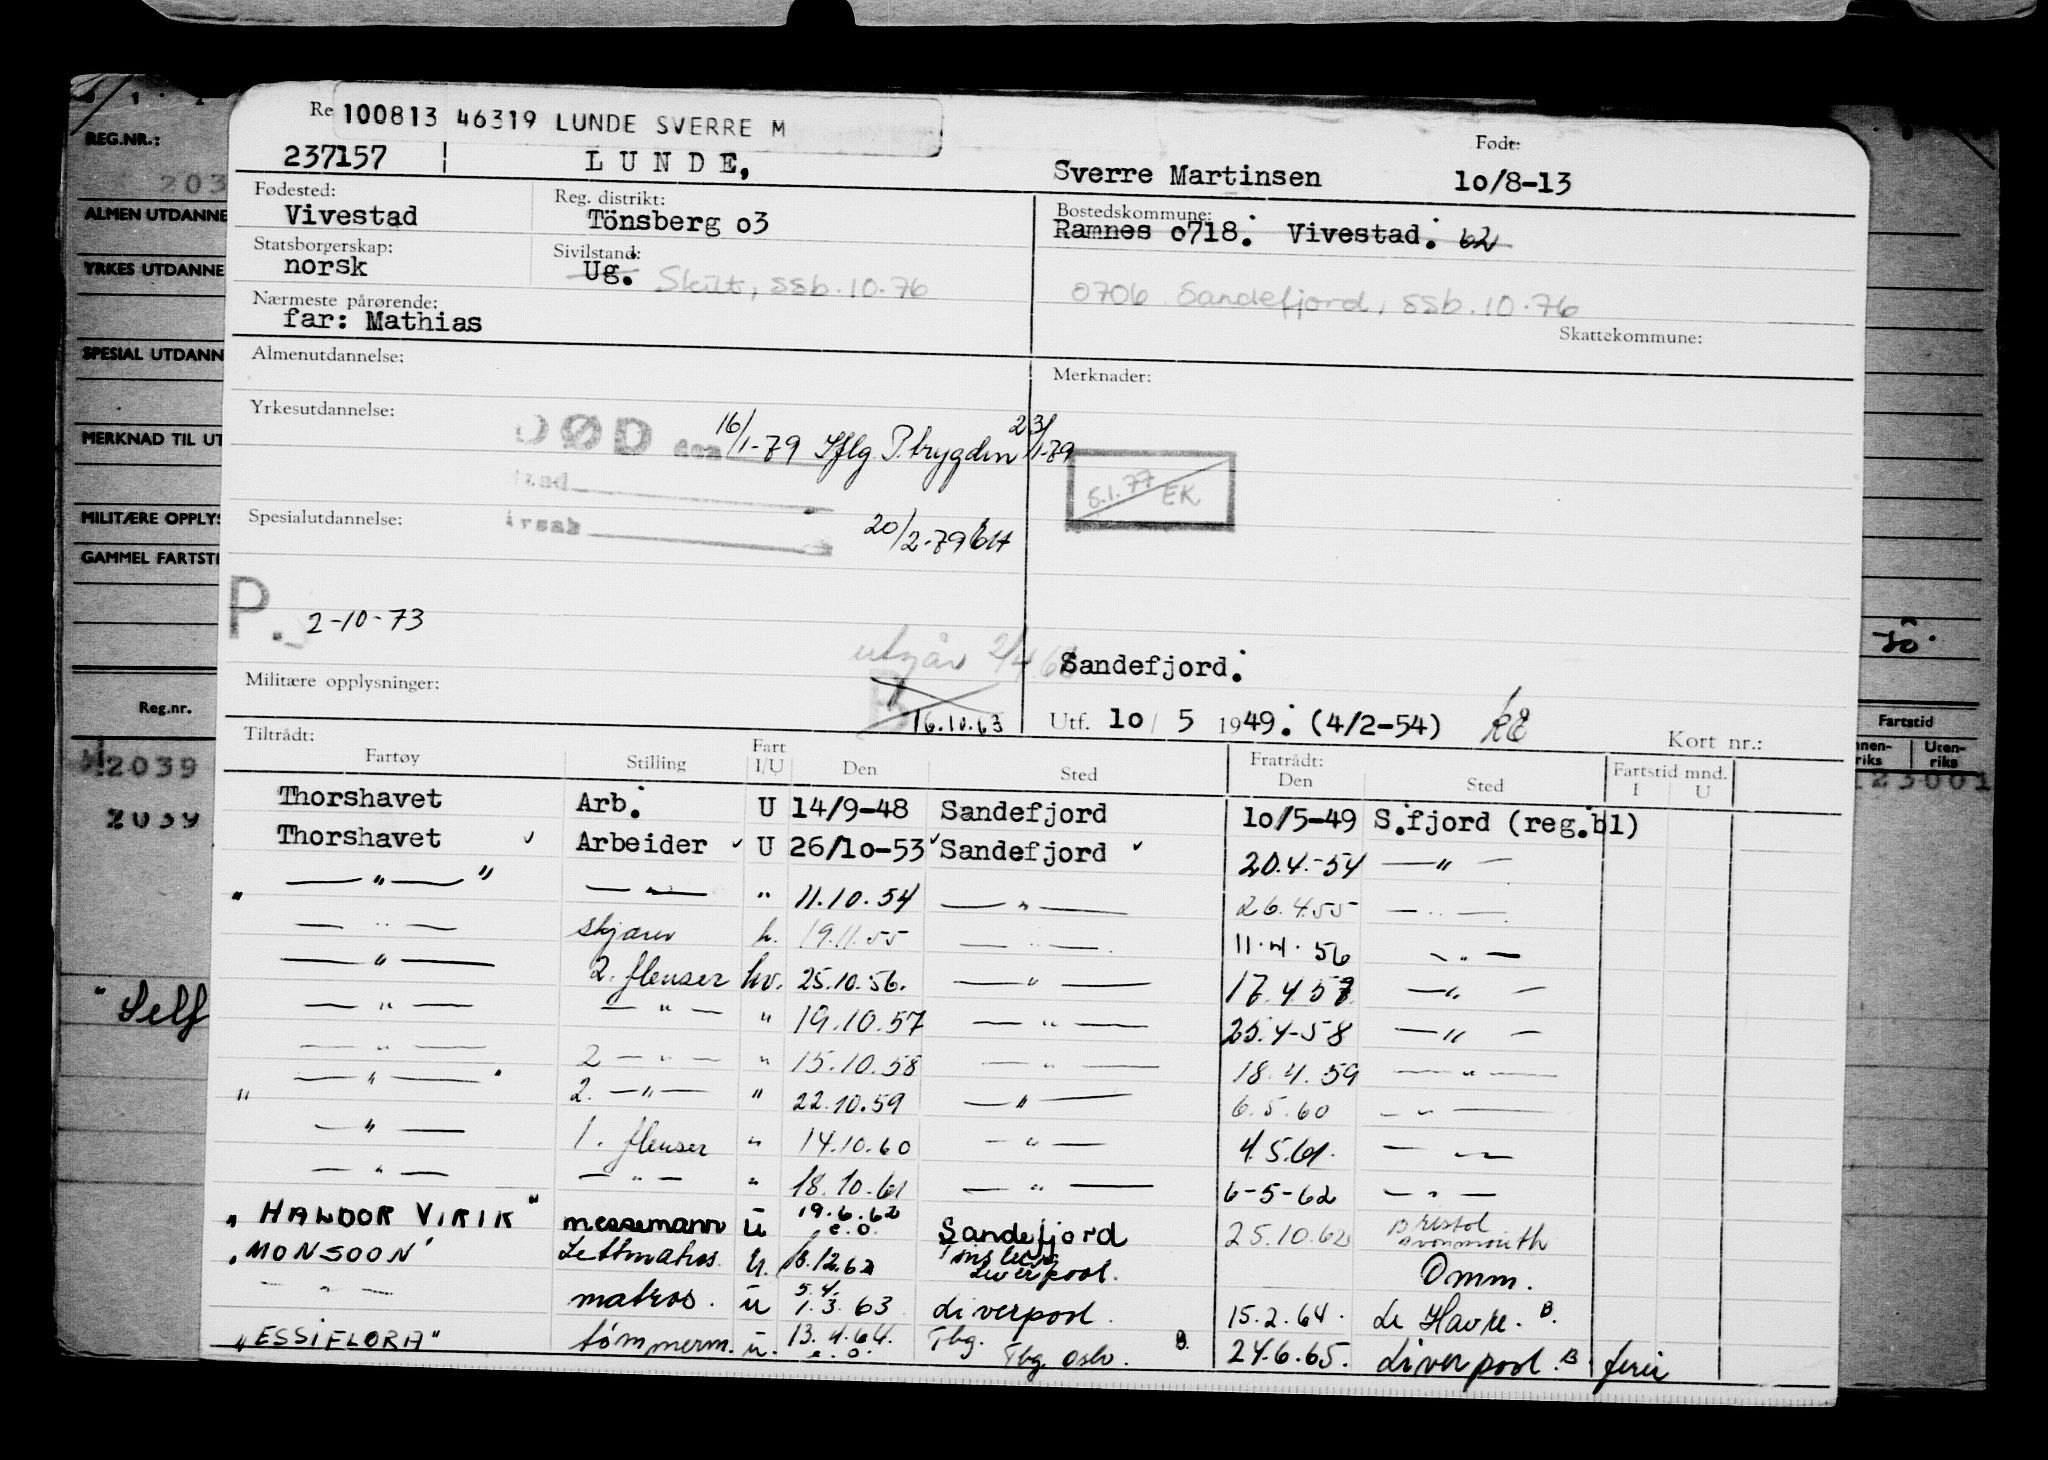 Re 100813 46319 LUNDE SVERRE M
Født:
237157 LUNDE, Sverre Martinsen 10/8-13
Fødested: Reg. distrikt: Bostedskommune:
Vivestad Tönsberg 03 Ramnes 0718. Vivestad. 62
Statsborgerskap: Sivilstand:
norsk Ug. Skilt, ssb.10.76 0706 Sandefjord, ssb.10.76
Nærmeste pårørende: Skattekommune:
far: Mathias
Almenutdannelse: Merknader:
Yrkesutdannelse:
DØD den 16/1-79 Iflg. P.trygden 23/1-79
5.1.77 EK
Spesialutdannelse: årsak
20/2-79
P. 2-10-73
utgår 2/4 Sandefjord.
Militære opplysninger: B 16.10.63
Utf. 10/5 1949. (4/2-54) Kort nr.:
Tiltrådt: Fratrådt: Fartstid mnd.
Fartøy Stilling Fart I/U Den Sted Den Sted I U
Thorshavet Arb. U 14/9-48 Sandefjord 10/5-49 S.fjord (reg.bl)
Thorshavet Arbeider U 26/10-53 Sandefjord 20.4.-54 — " —
" — " — " — " — " 11.10.54 — " — 26.4.55 — " —
— " — skjærer h. 19.11.55 — " — 11.4.56 — " —
— " — 2. flenser hv. 25.10.56. — " — 17.4.57 — " —
— " — — " — " 19.10.57 — " — 25.4-58 — " —
— " — 2 — " — " 15.10.58 — " — 18.4.59 — " —
" — " — 2. — " — " 22.10.59 — " — 6.5.60 — " —
— " — 1. flenser " 14.10.60 — " — 4.5.61. — " —
— " — — " — " 18.10.61 — " — 6-5-62 — " —
"HALDOR VIRIK" messemann ü 19.6.62 e.o. Sandefjord 25.10.62 Bristol Avonmouth
"MONSOON" Lettmatros. ü. 12.62 Liverpool. Omm.
— " — matros. ü 5.4. 1.3.63 Liverpool. 15.2.64. Le Havre. B.
"ESSIFLORA" tømmerm. ü. 13.4.64. e.o. Tbg. Tbg. Oslo. B. 24.6.65. Liverpool. B ferie
REG.NR.:
203
ALMEN UTDANNE
YRKES UTDANNE
SPESIAL UTDANN
MERKNAD TIL UT
MILITÆRE OPPLYS
GAMMEL FARTSTI
Reg.nr.
2039
2039
"Self
Fartstid
nnen-
riks
Uten-
riks
23001